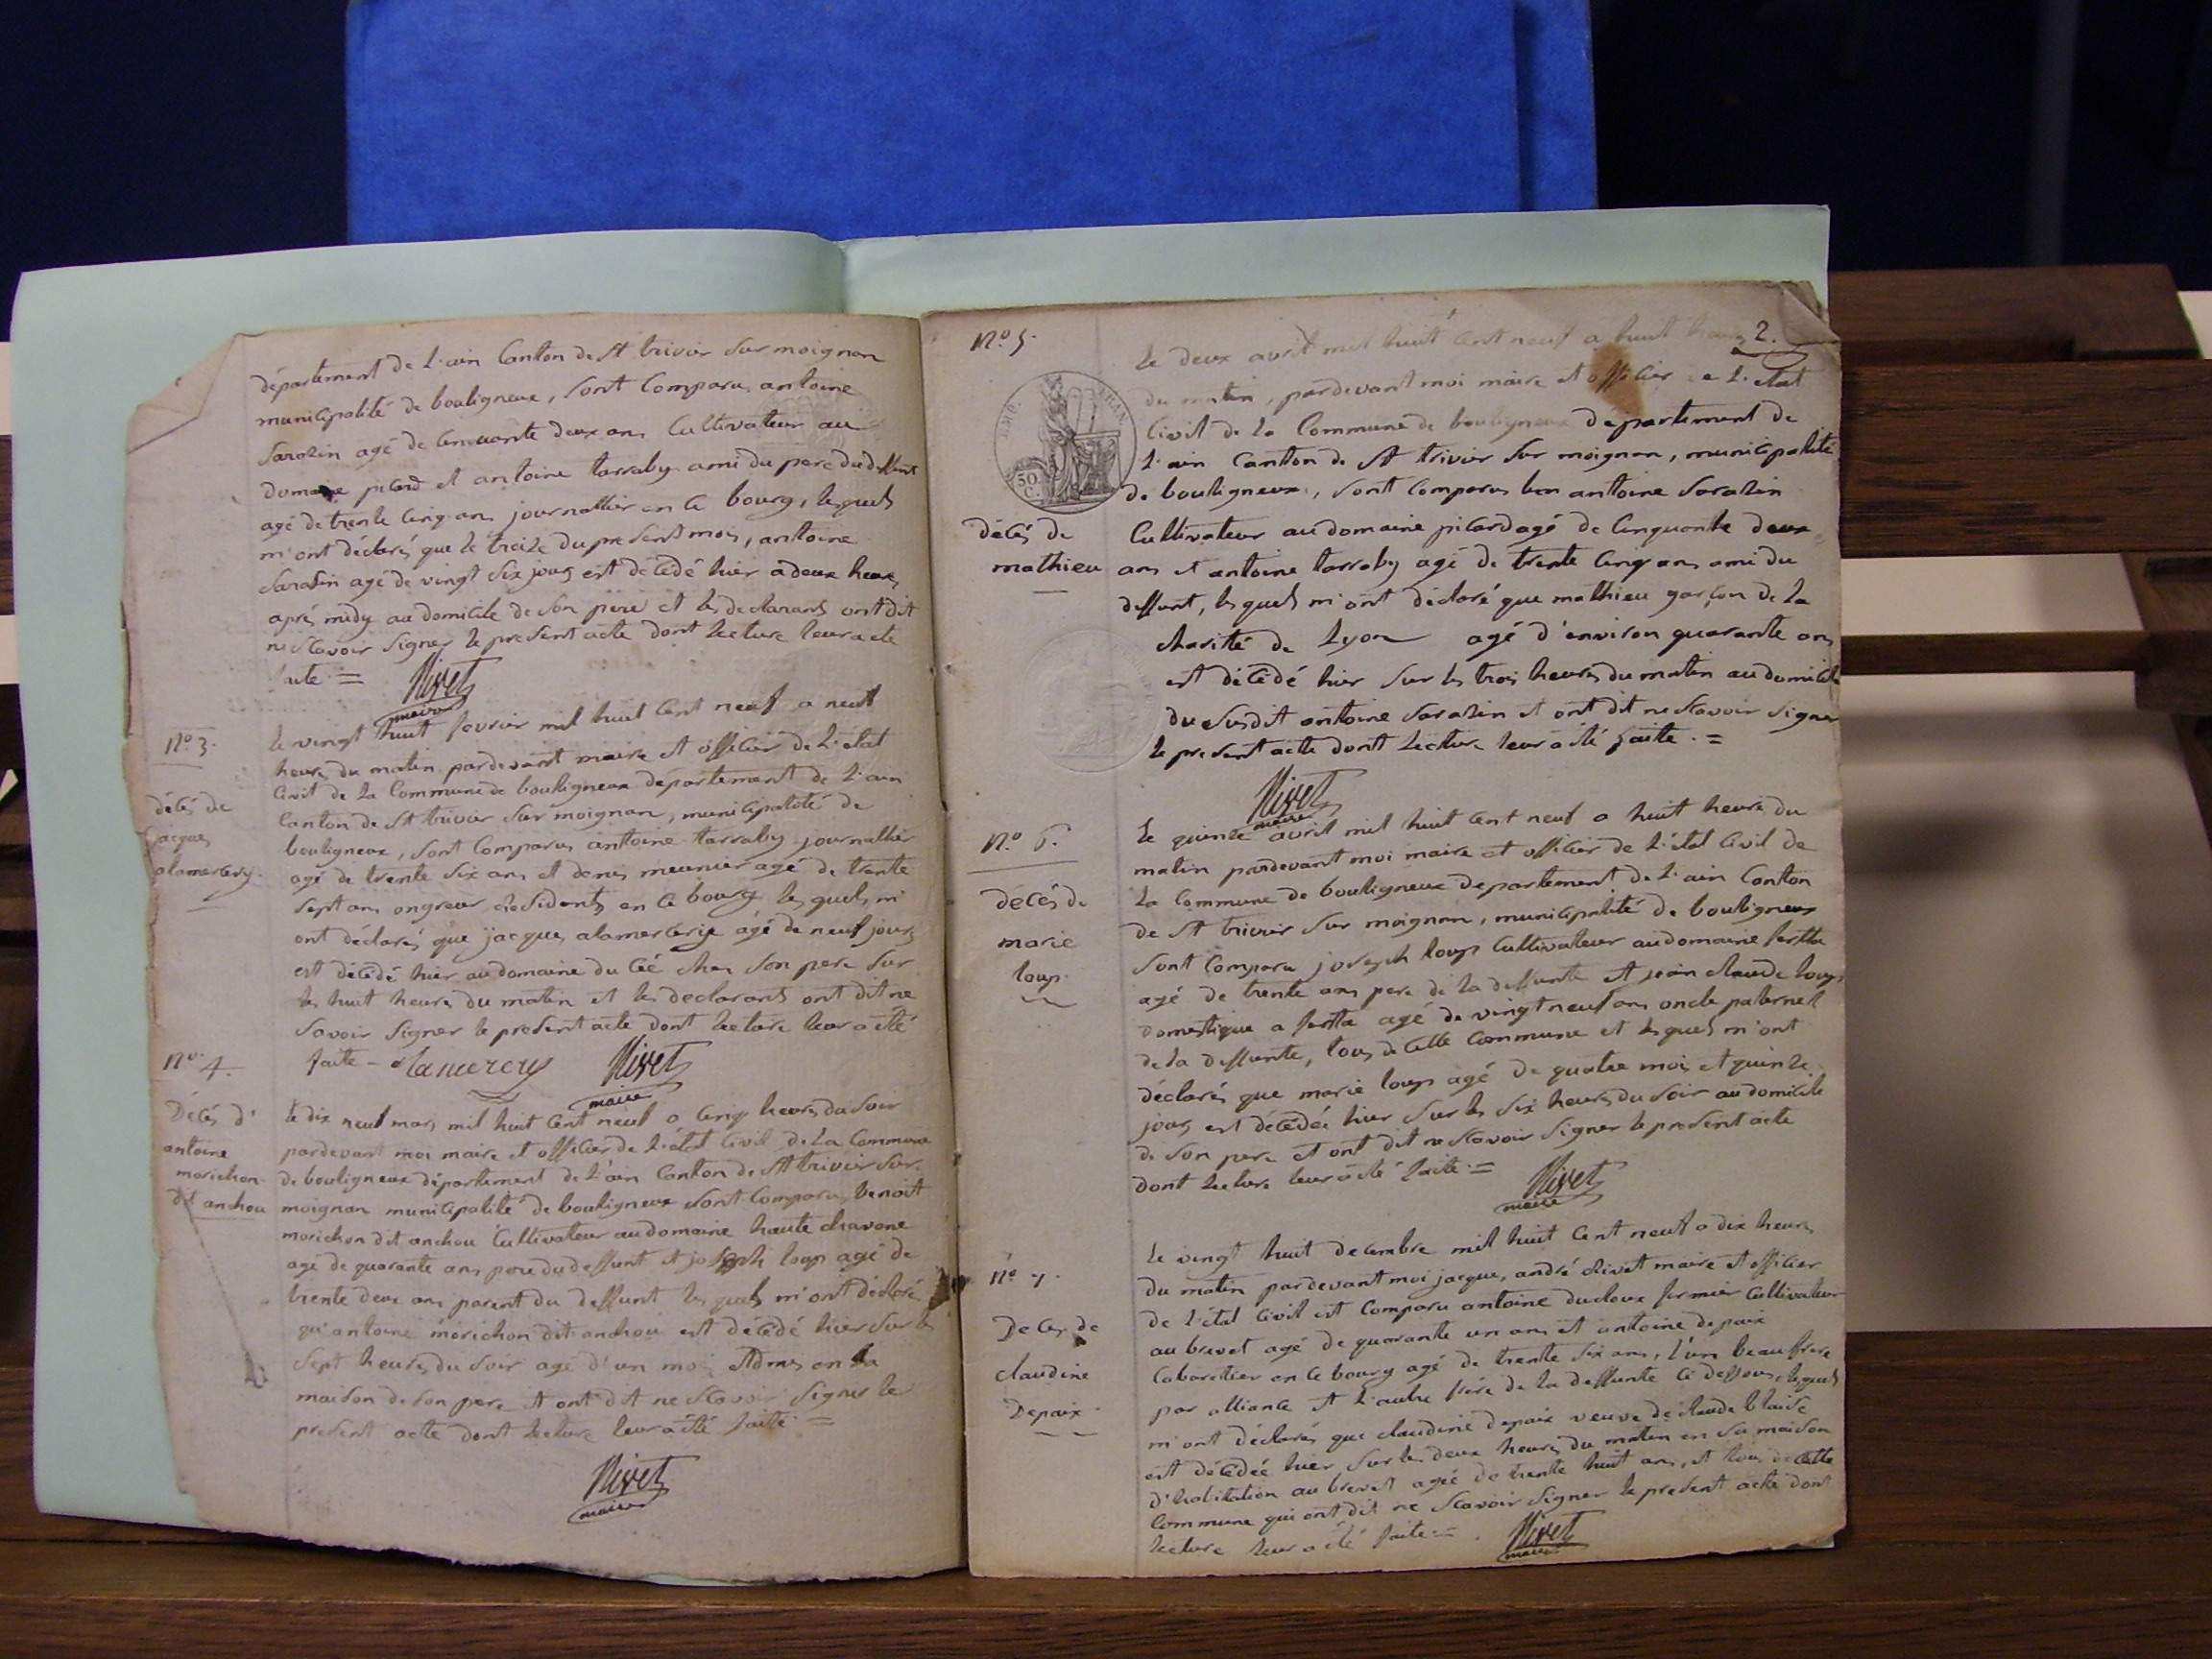 département de l'ain Canton de St trivier sur moignan
municipalité de bouligneux, sont Comparu, antoine
Sarasin agé de Cinquante deux ans Cultivateur au
domaine picard et antoine tarraby ami du pere du deffunt
agé de trente Cinq ans journallier en Ce bourg, lesquels
m'ont déclarés que le treize du present mois, antoine
Sarasin agé de vingt Six jours est décédé hier a deux heures
après midy au domicile de Son père et les declarants ont dit
ne Scavoir Signer le present acte dont lecture leur a été
faite = Rivet
maire
N° 3.
décés de
jacques
alamercery.
le vingt huit fevrier mil huit Cent neuf a neuf
heures du matin pardevant maire et officier de l'état
Civil de la Commune de bouligneux departement de l'ain
Canton de St trivier Sur moignan, municipalité de
bouligneux, Sont Comparus antoine tarraby journallier
agé de trente Six ans et denis meunier agé de trente
Sept ans residents en Ce bourg lesquels m'
ont déclarés que jacques alamercerye agé de neuf jours
est décédé hier au domaine du chez Son pere Sur
les huit heures du matin et les declarants ont dit ne
Savoir Signer le present acte dont lecture leur a été
faite - Rivet
maire
N° 4.
Décés d'
antoine
morichon
dit anchou
le dix neuf mars mil huit Cent neuf a Cinq heures du Soir
pardevant moi maire et officier de l'état Civil de la Commune
de bouligneux département de l'ain Canton de St trivier Sur
moignan municipalité de bouligneux Sont Comparu, benoit
morichon dit anchou Cultivateur au domaine haute chavane
agé de quarante ans pere du deffunt et joseph loup agé de
trente deux ans parent du deffunt lesquels m'ont déclaré
qu'antoine morichon dit anchou est décédé hier Sur les
Sept heures du Soir agé d'un mois en la
maison de Son pere et ont dit ne Scavoir Signer le
present acte dont lecture leur a été faite =
Rivet
maire
2.
N° 5.
TIMB. FRAN.
50
C.
décés de
mathieu
le deux avril mil huit Cent neuf a huit heures
du matin, pardevant moi maire et officier de l'etat
Civil de la Commune de bouligneux département de
l'ain Canton de St trivier Sur moignan, municipalité
de bouligneux, Sont Comparus antoine Sarasin
Cultivateur au domaine picard agé de Cinquante deux
ans et antoine tarraby agé de trente Cinq ans ami du
deffunt, lesquels m'ont déclaré que mathieu garçon de la
charitté de Lyon agé d'environ quarante ans
est décédé hier Sur les trois heures du matin au domicile
du Susdit antoine Sarasin et ont dit ne Scavoir Signer
le present acte dont lecture leur a été faite. =
Rivet
maire
N° 6.
décés de
marie
loup
le quinze avril mil huit Cent neuf a huit heures du
matin pardevant moi maire et officier de l'état Civil de
la Commune de bouligneux departement de l'ain Canton
de St trivier Sur moignan, municipalité de bouligneux
Sont Comparu joseph loup Cultivateur au domaine
agé de trente ans pere de la deffunte et jean claude loup
domestique a agé de vingt neuf ans oncle paternel
de la deffunte, tous de Cette Commune et lesquels m'ont
déclarés que marie loup agé de quatre mois et quinze
jours est décédée hier Sur les Six heures du Soir au domicile
de Son pere et ont dit ne Scavoir Signer le present acte
dont lecture leur a été faite = Rivet
maire
N° 7.
Decés de
claudine
Depaix
le vingt huit decembre mil huit Cent neuf a dix heures
du matin pardevant moi jacques andré Rivet maire et officier
de l'état Civil est Comparu antoine ducloux fermier Cultivateur
au brevet agé de quarante un ans et antoine depaix
Cabaretier en Ce bourg agé de trente Six ans, l'un beau frere
par alliance et l'autre frère de la deffunte Ci dessous, lesquels
m'ont déclarés que claudine depaix veuve de claude blaise
est décédée hier Sur les deux heures du matin en Sa maison
d'habitation au brevet agée de trente huit ans, et tous de Cette
Commune qui ont dit ne Scavoir Signer le present acte dont
lecture leur a été faite = . Rivet
maire